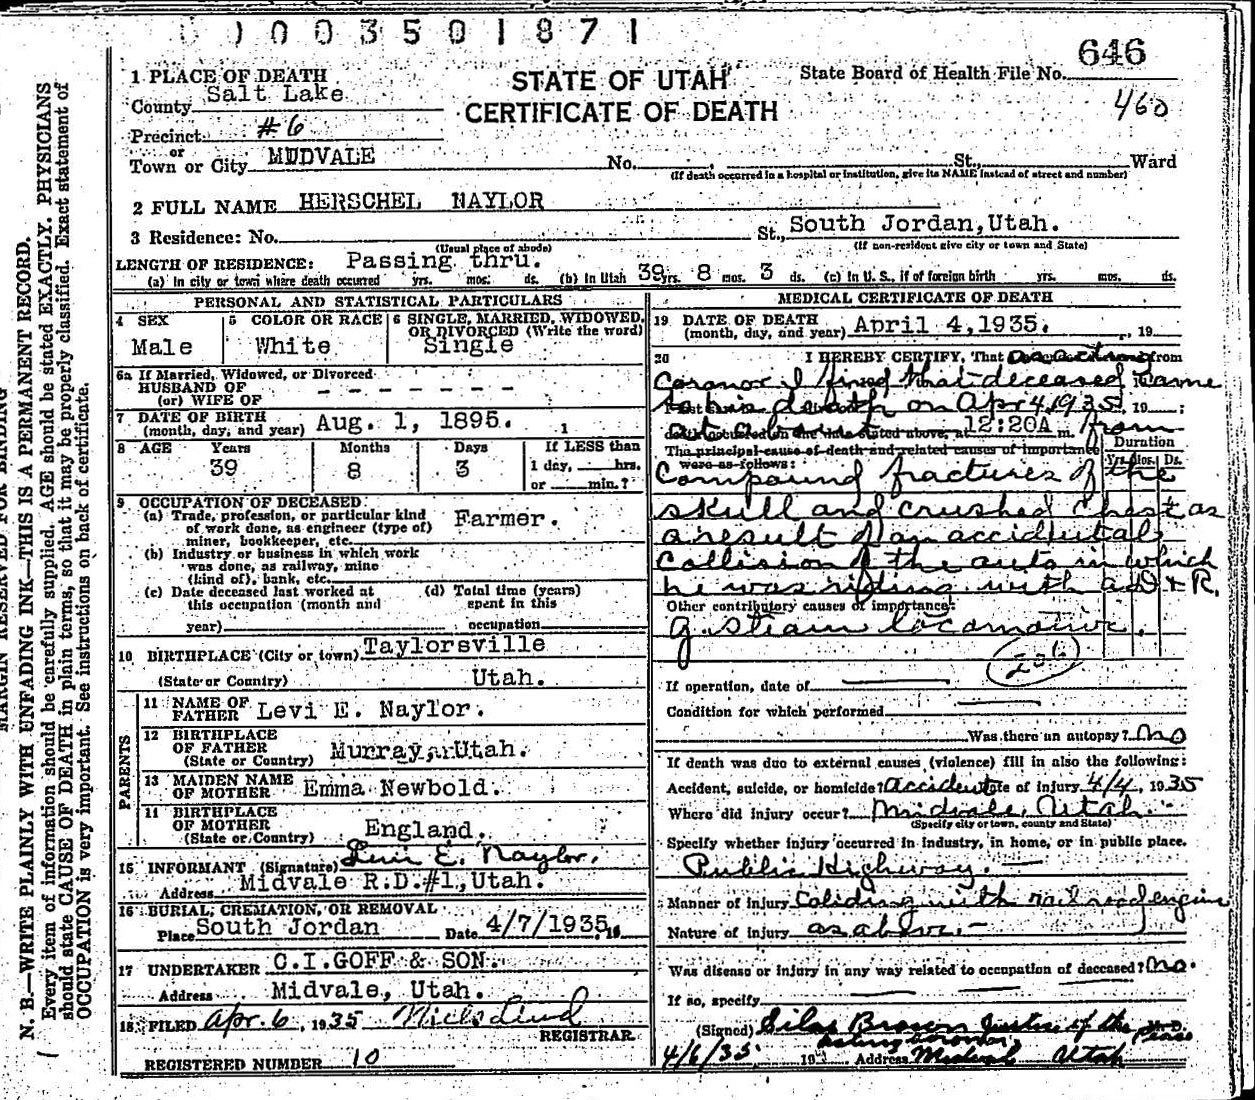 0003501871
646
STATE OF UTAH
CERTIFICATE OF DEATH
State Board of Health File No.
460
1 PLACE OF DEATH
County Salt Lake
Precinct #6
or
Town or City MIDVALE No. , St., Ward
(If death occurred in a hospital or institution, give its NAME instead of street and number)
2 FULL NAME HERSCHEL NAYLOR
3 Residence: No. St., South Jordan, Utah.
(Usual place of abode) (If non-resident give city or town and State)
LENGTH OF RESIDENCE: Passing thru.
(a) In city or town where death occurred yrs. mos. ds. (b) In Utah 39 yrs. 8 mos. 3 ds. (c) In U. S., if of foreign birth yrs. mos. ds.
PERSONAL AND STATISTICAL PARTICULARS
4 SEX
Male
5 COLOR OR RACE
White
6 SINGLE, MARRIED, WIDOWED,
OR DIVORCED (Write the word)
Single
6a If Married, Widowed, or Divorced
HUSBAND OF
(or) WIFE OF
7 DATE OF BIRTH
(month, day, and year) Aug. 1, 1895.
8 AGE Years Months Days If LESS than
39 8 3 1 day, hrs.
or min.?
9 OCCUPATION OF DECEASED
(a) Trade, profession, or particular kind
of work done, as engineer (type of) Farmer.
miner, bookkeeper, etc.
(b) Industry or business in which work
was done, as railway, mine
(kind of), bank, etc.
(c) Date deceased last worked at
this occupation (month and
year)
(d) Total time (years)
spent in this
occupation
10 BIRTHPLACE (City or town) Taylorsville
(State or Country) Utah.
PARENTS
11 NAME OF
FATHER Levi E. Naylor.
12 BIRTHPLACE
OF FATHER Murray, Utah.
(State or Country)
13 MAIDEN NAME
OF MOTHER Emma Newbold.
11 BIRTHPLACE
OF MOTHER England.
(State or Country)
15 INFORMANT (Signature) Levi E. Naylor.
Address Midvale R.D.#1, Utah.
16 BURIAL, CREMATION, OR REMOVAL
Place South Jordan Date 4/7/1935, 19
17 UNDERTAKER C.I.GOFF & SON.
Address Midvale, Utah.
18 FILED Apr. 6, 1935 Niels Lind
REGISTRAR
REGISTERED NUMBER 10
MEDICAL CERTIFICATE OF DEATH
19 DATE OF DEATH
(month, day, and year) April 4, 1935. , 19
20 I HEREBY CERTIFY, That as acting from
Coronor I find that deceased came
to his death on Apr 4 1935, 19 ;
at about 12:20A m. from
death occurred on the date stated above, at
The principal cause of death and related causes of importance
were as follows:
Duration
Yrs. Mos. Ds.
Compound fractures of the
skull and crushed chest as
a result of an accidental
Collision of the auto in which
he was riding with a D & R.
Other contributory causes of importance:
G. steam locomotive.
206
If operation, date of
Condition for which performed
Was there an autopsy? No
If death was due to external causes (violence) fill in also the following:
Accident, suicide, or homicide? Accident Date of injury 4/4, 1935
Where did injury occur? Midvale, Utah.
(Specify city or town, county and State)
Specify whether injury occurred in industry, in home, or in public place.
Public Highway.
Manner of injury Coliding with railroad engine
Nature of injury as above.
Was disease or injury in any way related to occupation of deceased? No.
If so, specify
(Signed) Silas Brown Justice of the Peace
Acting Coronor
4/6/35 19 Address Midvale Utah
MARGIN RESERVED FOR BINDING
N. B.—WRITE PLAINLY WITH UNFADING INK—THIS IS A PERMANENT RECORD.
Every item of information should be carefully supplied. AGE should be stated EXACTLY. PHYSICIANS
should state CAUSE OF DEATH in plain terms, so that it may be properly classified. Exact statement of
OCCUPATION is very important. See instructions on back of certificate.